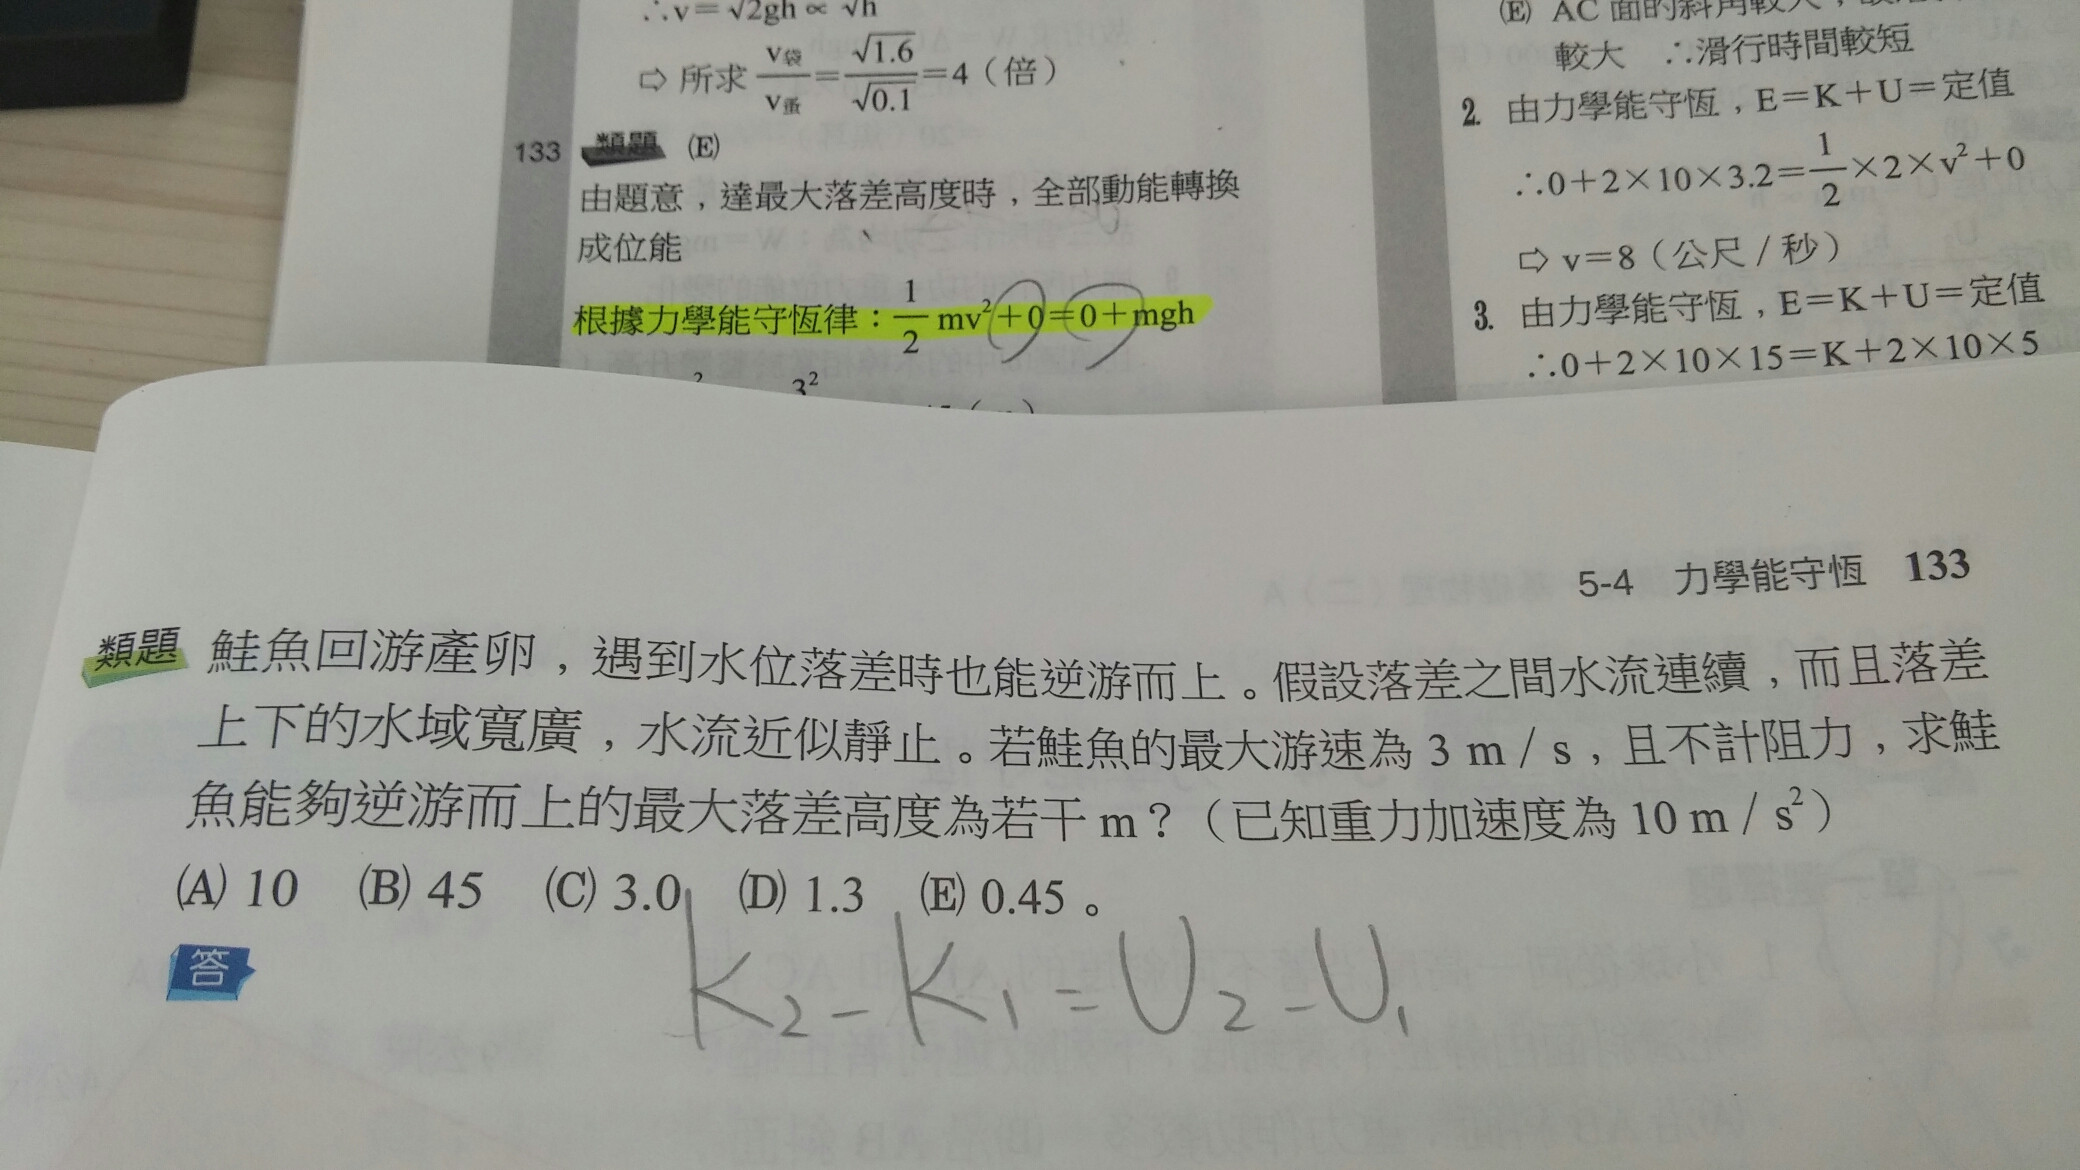 ∴v=√2gh ∝ √h
⇨ 所求 v袋/v蚤=√1.6/√0.1=4（倍）
133 類題 (E)
由題意，達最大落差高度時，全部動能轉換
成位能
根據力學能守恆律：1/2 mv²+0=0+mgh
3²
(E) AC 面的斜角較大，
較大 ∴滑行時間較短
2. 由力學能守恆，E=K+U=定值
∴0+2×10×3.2=1/2×2×v²+0
⇨ v=8（公尺/秒）
3. 由力學能守恆，E=K+U=定值
∴0+2×10×15=K+2×10×5
5-4 力學能守恆 133
類題 鮭魚回游產卵，遇到水位落差時也能逆游而上。假設落差之間水流連續，而且落差
上下的水域寬廣，水流近似靜止。若鮭魚的最大游速為 3 m/s，且不計阻力，求鮭
魚能夠逆游而上的最大落差高度為若干 m？（已知重力加速度為 10 m/s²）
(A) 10 (B) 45 (C) 3.0 (D) 1.3 (E) 0.45。
答
K₂-K₁=U₂-U₁